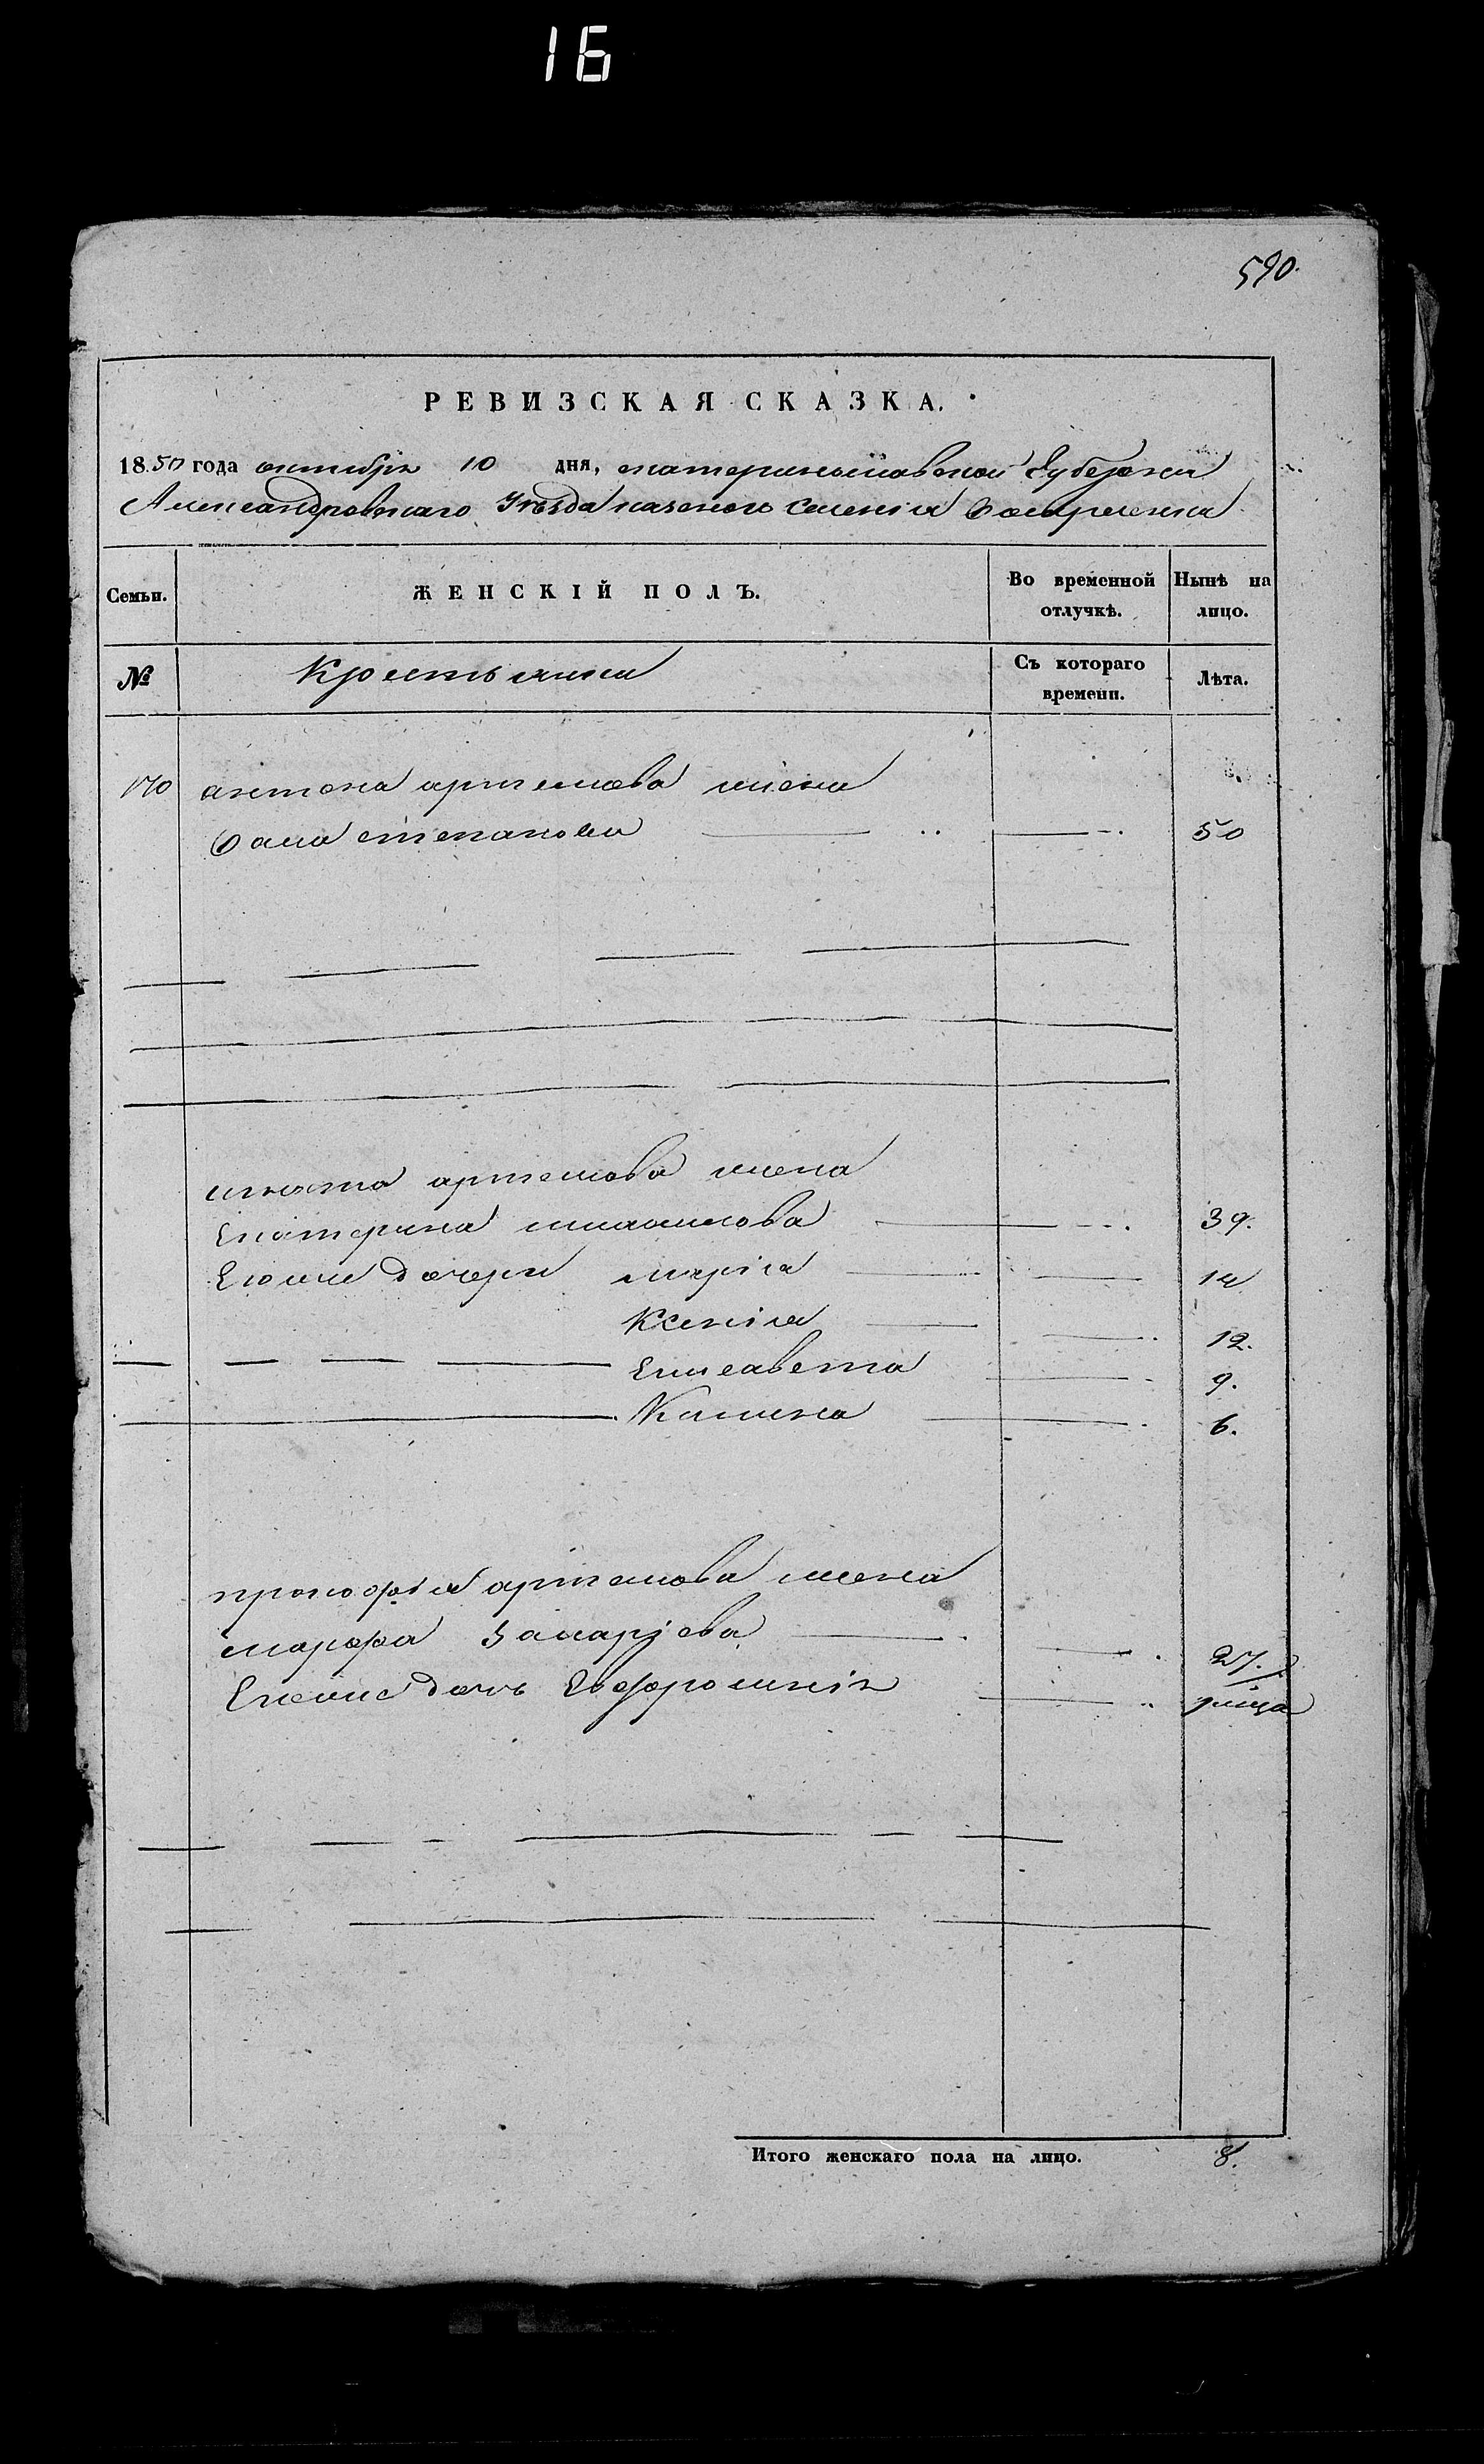 16
590.
РЕВИЗСКАЯ СКАЗКА.
1850 года октября 10 дня, екатеринославской Губернии
Александровскаго Уѣзда казенного селенія
Семьи.
ЖЕНСКІЙ ПОЛЪ.
Во временной отлучкѣ.
Нынѣ на лицо.
№
Крестьянки
Съ котораго времени.
Лѣта.
170 антона артемова жена
степанова 50
игната артемова жена
Екатерина 39.
Ихже дочери марія 14
Ксенія 12.
Елисавета 9.
6.
прокофія артемова жена
марфа Захарјева 27.
Ихже дочь Евфросинія
Итого женскаго пола на лицо. 8.